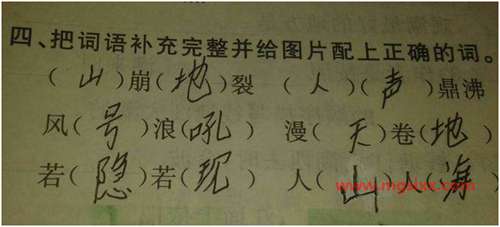 四、把词语补充完整并给图片配上正确的词。
(山)崩(地)裂 (人)(声)鼎沸
风(号)浪(吼) 漫(天)卷(地)
若(隐)若(现) 人(山)人(海)
www.mgsixx.com